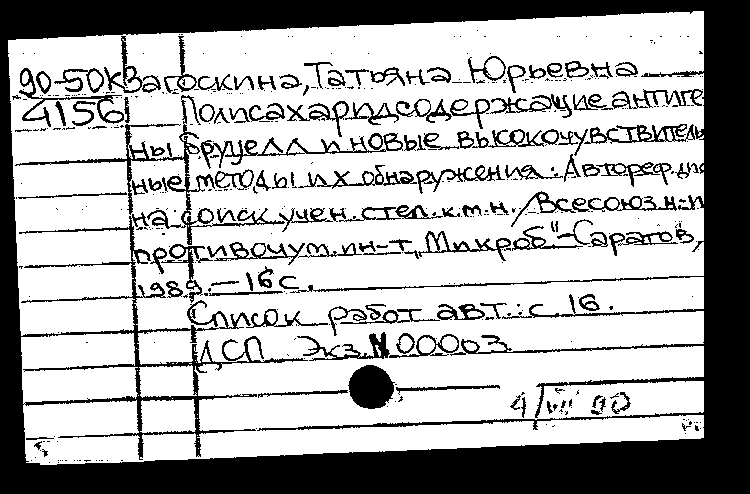 90-50к Загоскина, Татьяна Юрьевна
4156 Полисахаридсодержащие антиге-
ны бруцелл и новые высокочувствитель
ные методы их обнаружения: Автореф. дис
на соиск. учен. степ. к.м.н. / Всесоюз. н.-и
противочум. ин-т „Микроб" - Саратов,
1989. - 16 с.
Список работ авт.: с. 16.
ДСП Экз. N 00003
4/VII 90